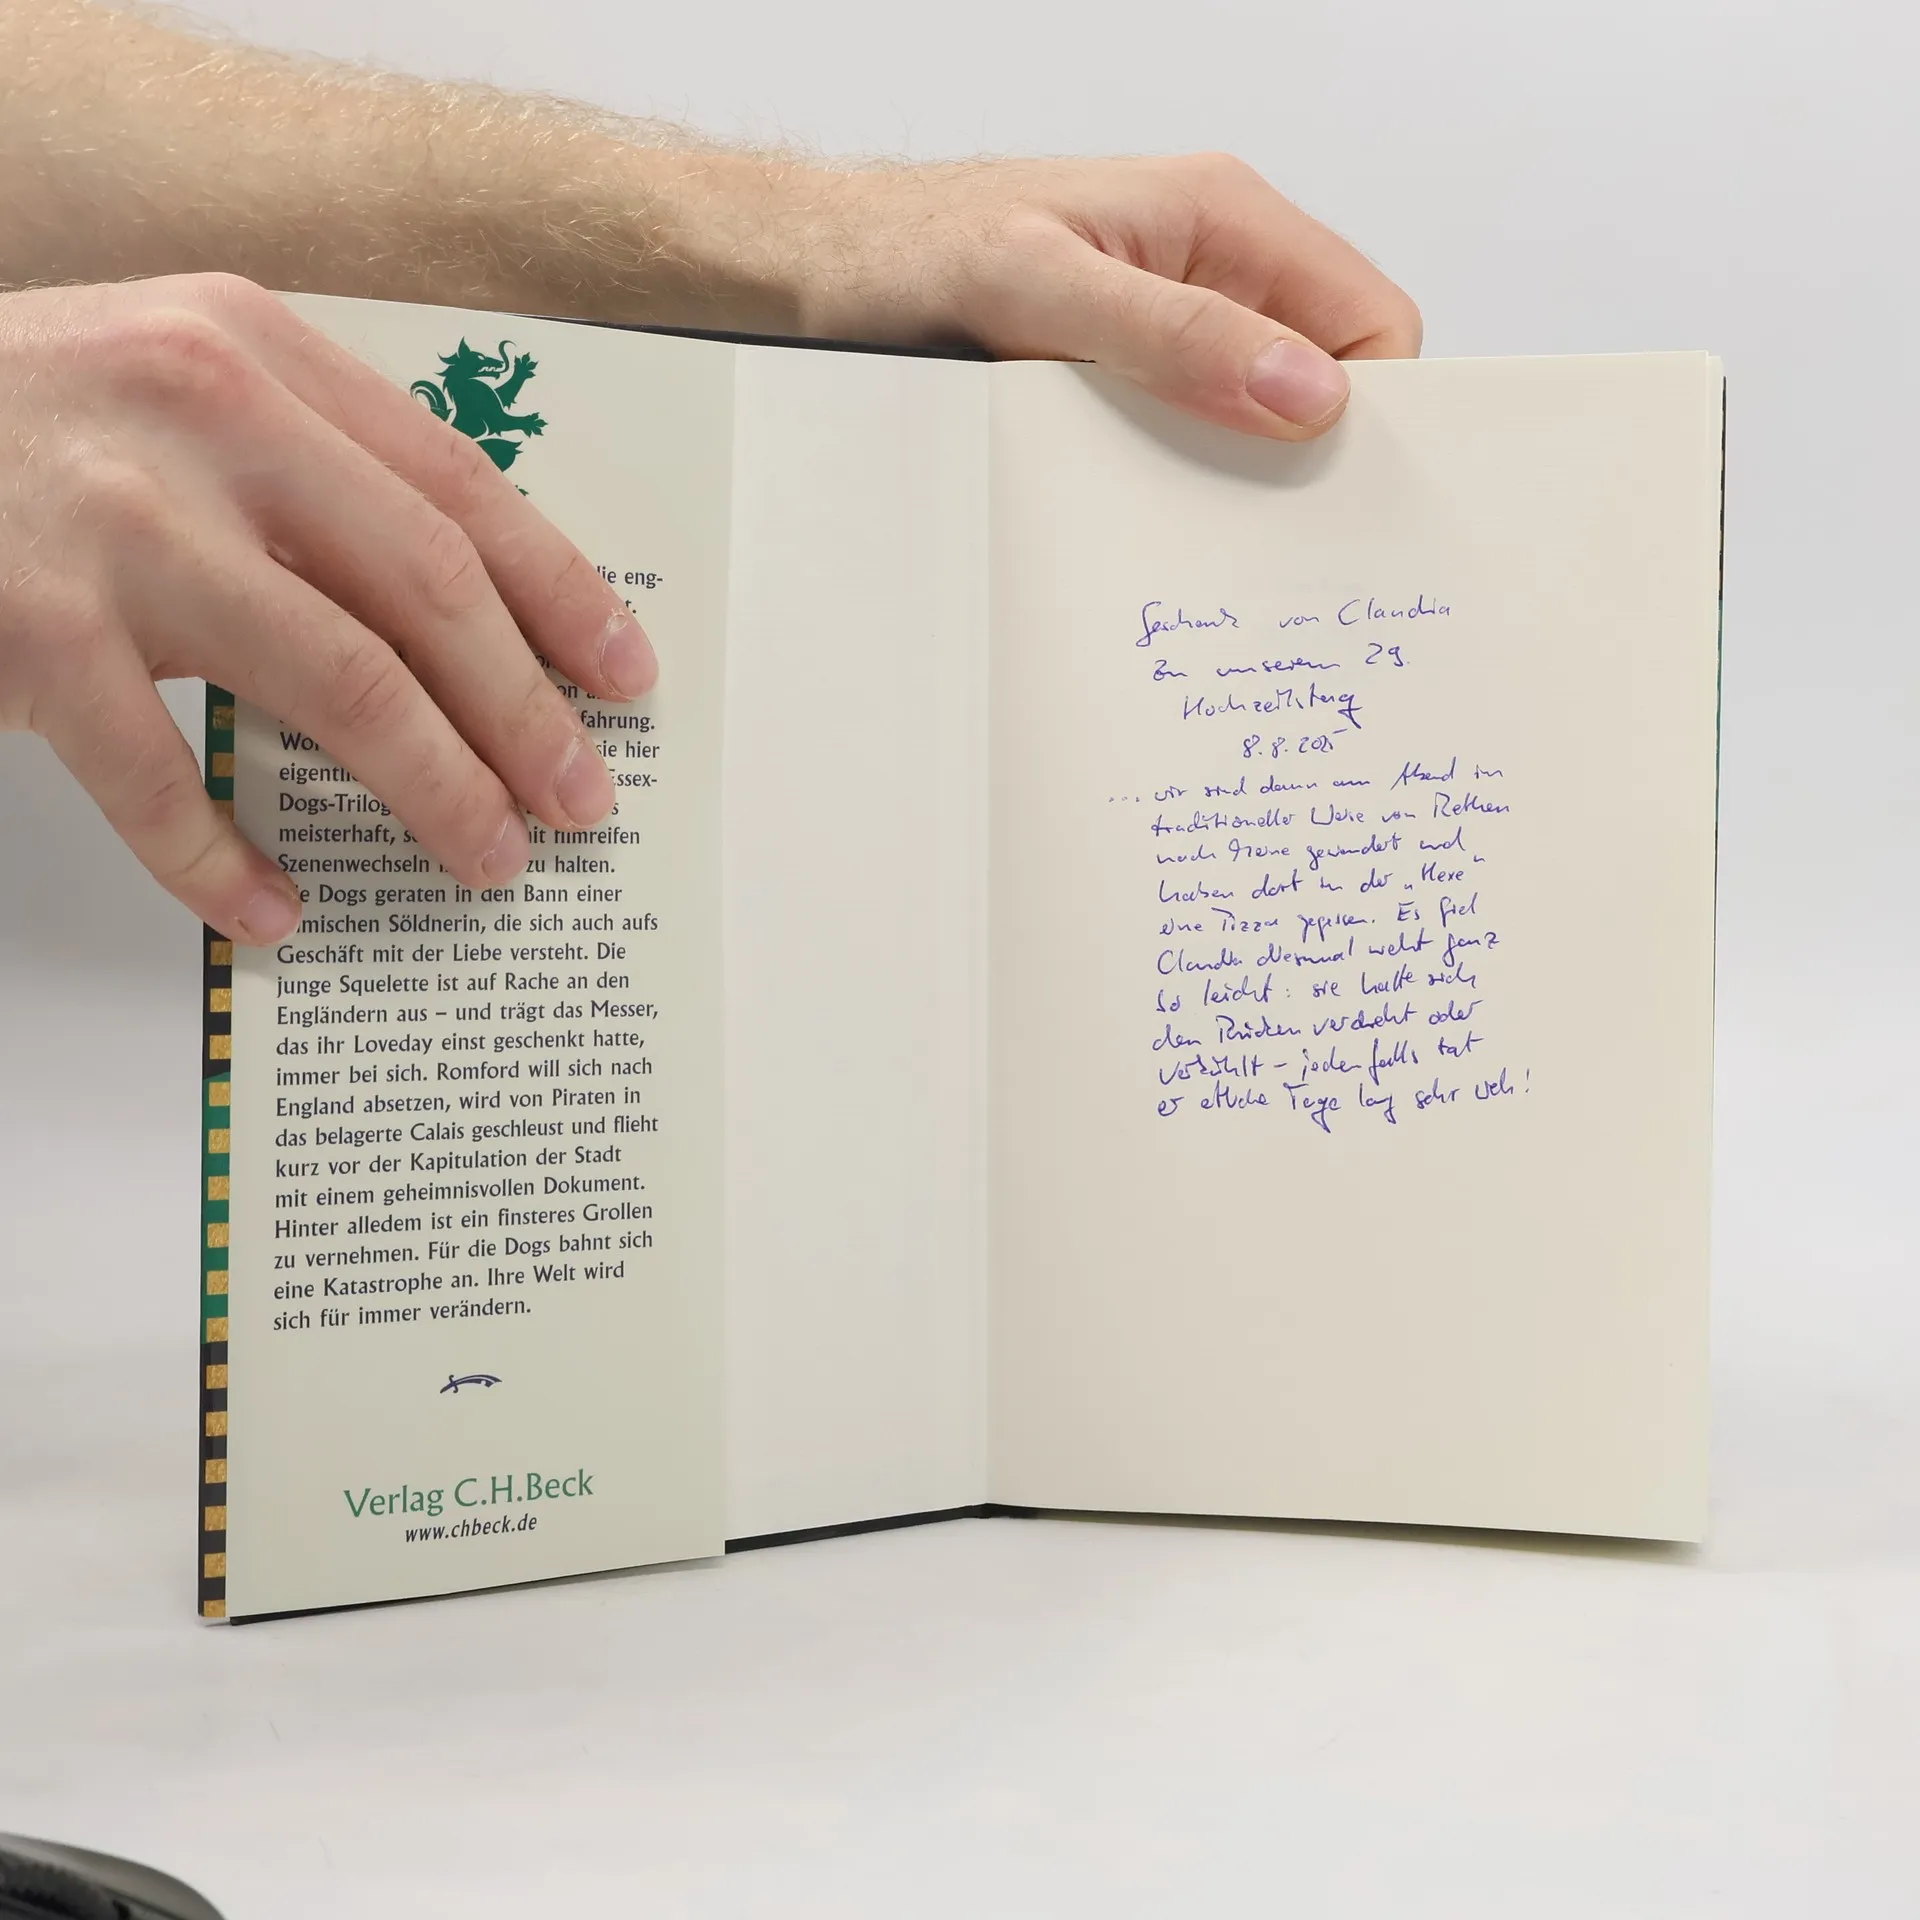 lie eng-
t.
fahrung.
sie hier
eigentli
Essex-
Dogs-Trilog
s
meisterhaft, s nit filmreifen
Szenenwechseln zu halten.
e Dogs geraten in den Bann einer
mischen Söldnerin, die sich auch aufs
Geschäft mit der Liebe versteht. Die
junge Squelette ist auf Rache an den
Engländern aus – und trägt das Messer,
das ihr Loveday einst geschenkt hatte,
immer bei sich. Romford will sich nach
England absetzen, wird von Piraten in
das belagerte Calais geschleust und flieht
kurz vor der Kapitulation der Stadt
mit einem geheimnisvollen Dokument.
Hinter alledem ist ein finsteres Grollen
zu vernehmen. Für die Dogs bahnt sich
eine Katastrophe an. Ihre Welt wird
sich für immer verändern.
Verlag C.H.Beck
www.chbeck.de
Geschenk von Claudia
zu unserem 29.
Hochzeitstag
8.8.2025
... wir sind dann am Abend in
traditioneller Weise von Rethen
nach gewandert und
haben dort in der „Hexe“
eine Pizza gegessen. Es fiel
Claudia diesmal nicht ganz
so leicht: sie hatte sich
den Rücken verdreht oder
verkühlt – jedenfalls tat
er etliche Tage lang sehr weh!